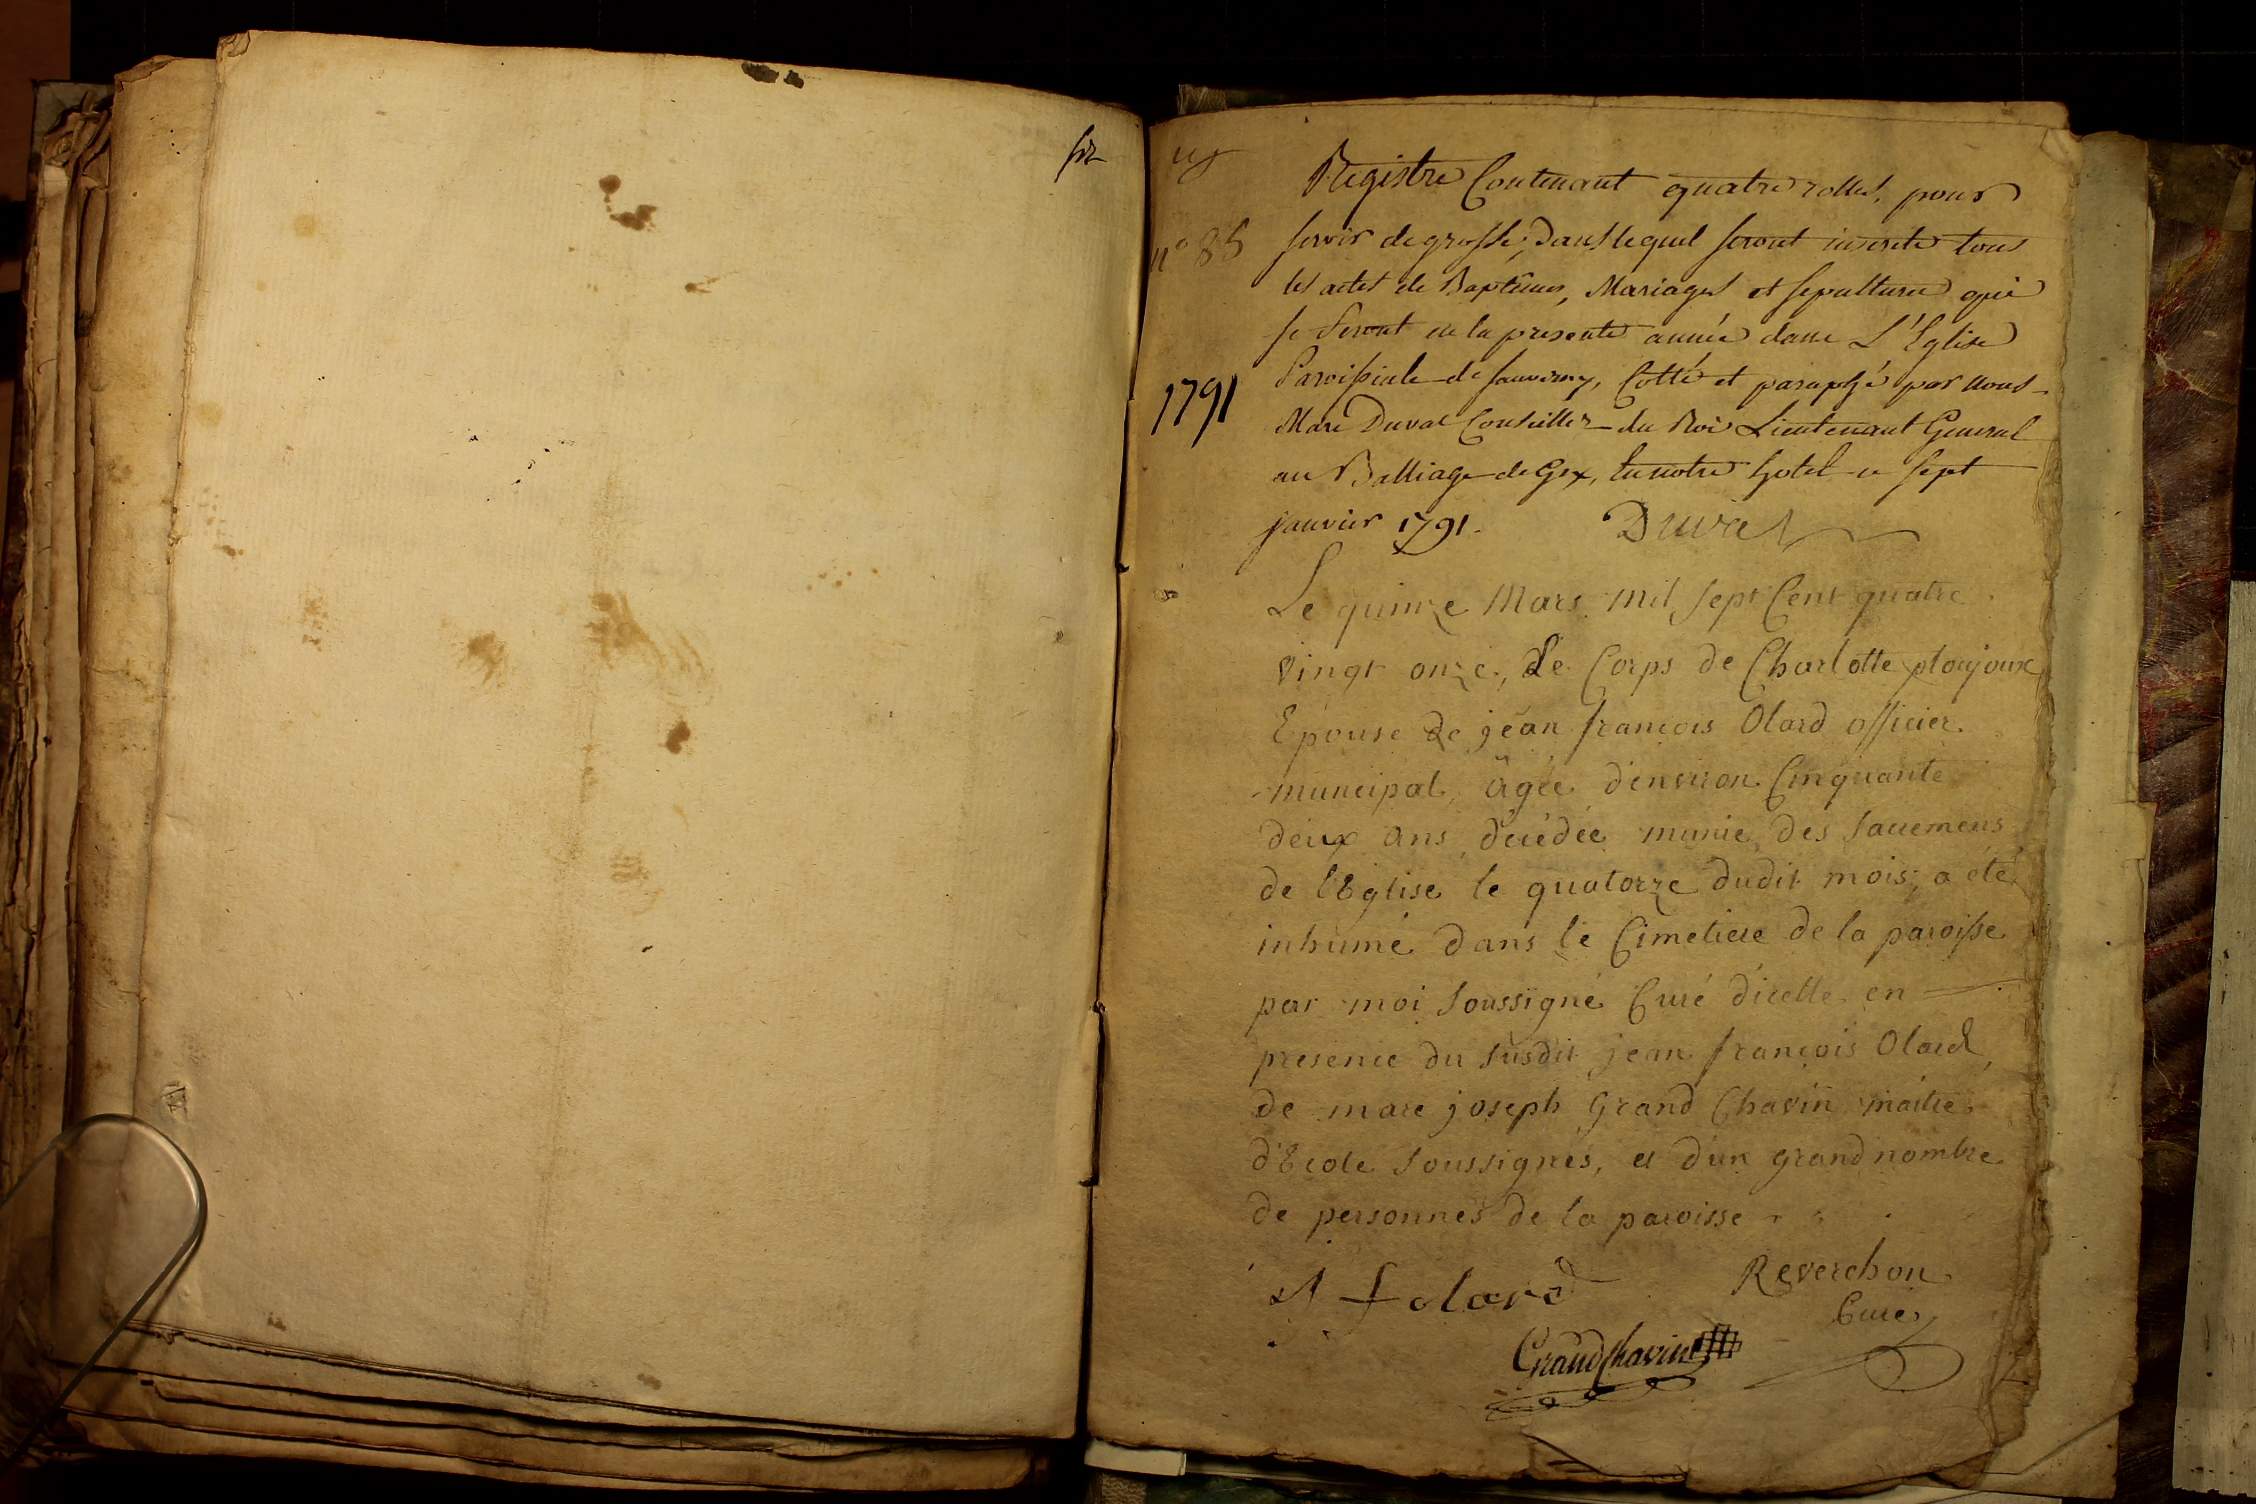 six
n° 85
1791
Registre Contenant quatre rolles, pour
servir de grosse, Dans lequel seront inscrits tous
les actes de Baptêmes, Mariages et sepultures qui
se feront en la presente année dans L'Eglise
Paroissiale de Sauverny, Cotté et paraphé par nous
Marc Duval Conseiller du Roi Lieutenant General
au Balliage de Gex, En notre hotel ce sept
janvier 1791.
Duval
Le quinze Mars mil sept Cent quatre
vingt onze, Le Corps de Charlotte ploujoux
Epouse de jean françois Olard officier
municipal, âgée d'environ Cinquante
deux ans décédée munie des sacremens
de l'Eglise le quatorze dudit mois, a été
inhumé dans le Cimetiere de la paroisse
par moi soussigné Curé d'icelle en
presence du susdit jean françois Olard,
de marc joseph Grand Chavin maitre
d'Ecole soussignés, et d'un grand nombre
de personnes de la paroisse
f olard
Reverchon
Curé
Grand Chavin